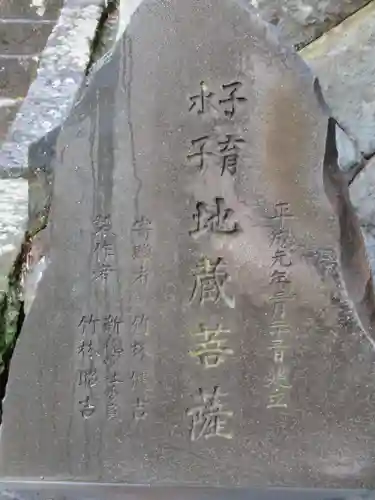 平成元年三月二十日建立
子育
水子
地蔵菩薩
寄贈者 竹林
製作者
竹林昭吉